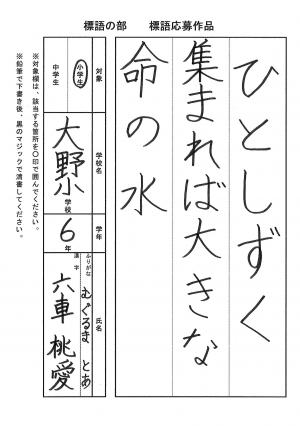 標語の部　標語応募作品
ひとしずく
集まれば大きな
命の水
対象
小学生
中学生
学校名
大野小学校
学年
6年
ふりがな
漢字
氏名
むぐるま とあ
六車 桃愛
※対象欄は、該当する箇所を〇印で囲んでください。
※鉛筆で下書き後、黒のマジックで清書してください。